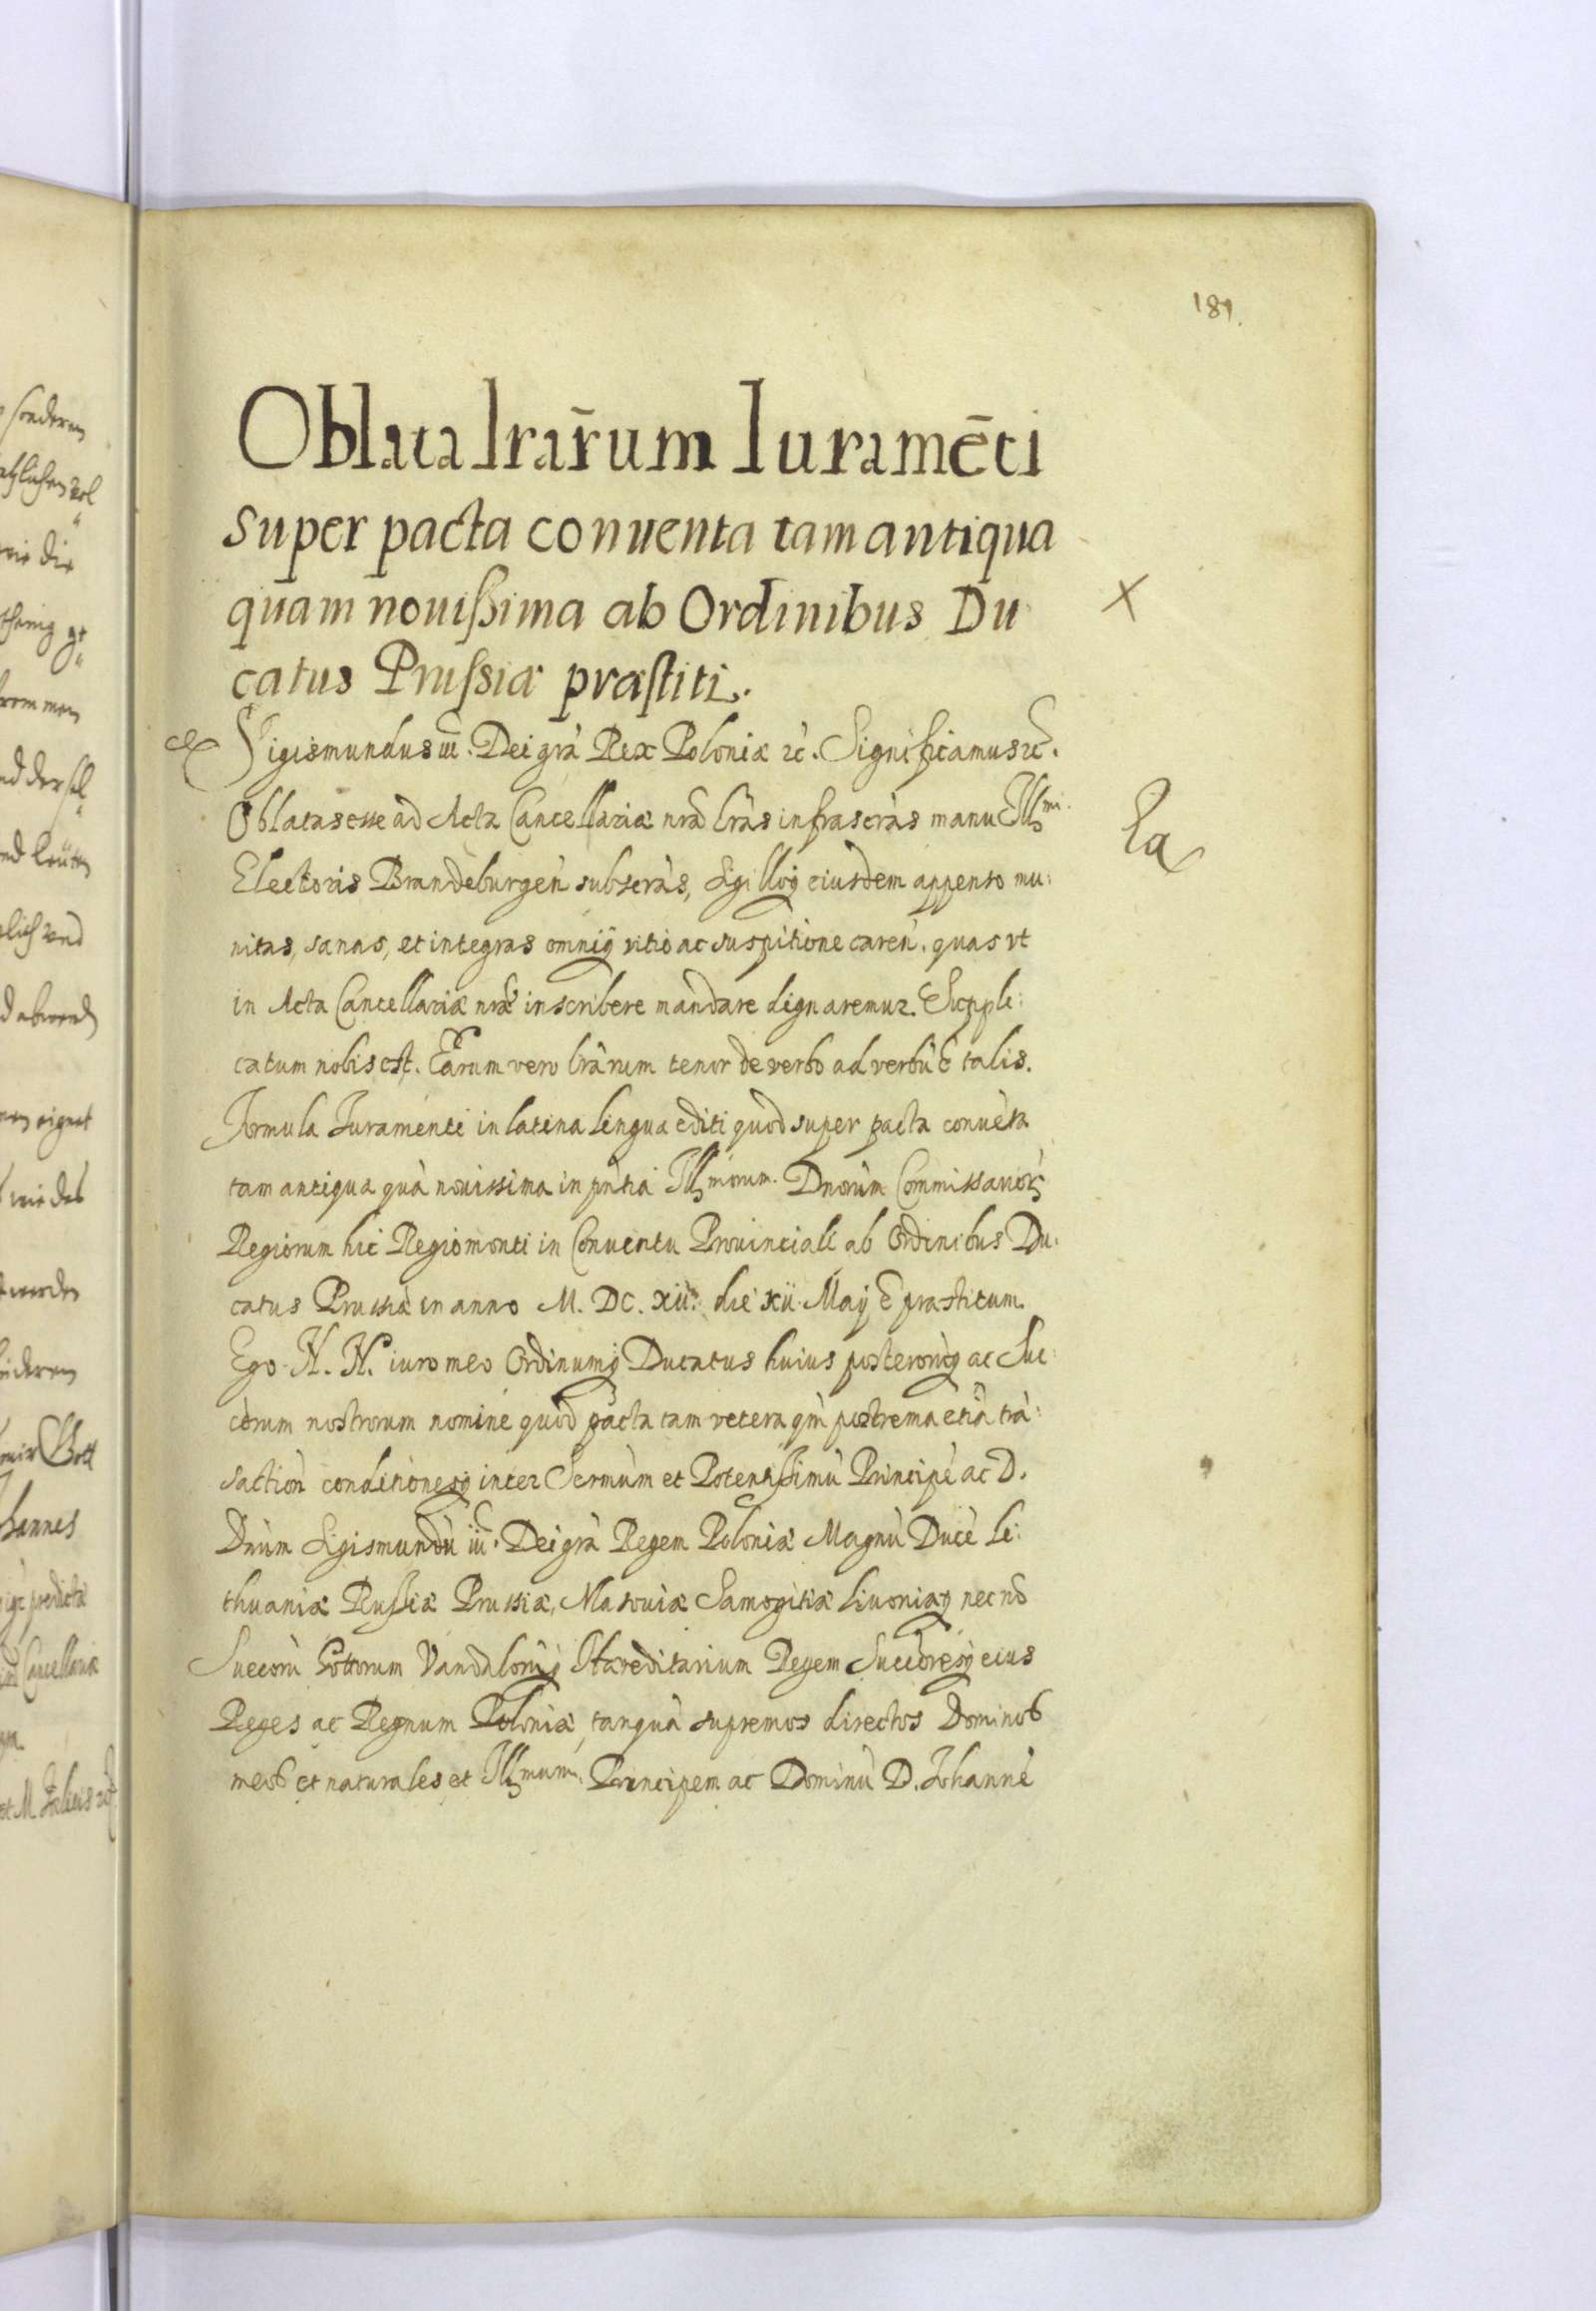 181.
Oblata lrarūm Iuramēti
super pacta conuenta tam antiqua
quam nouissima ab Ordinibus Du
catus Prussiæ præstiti.
Sigismundus iii. Dei grà Rex Poloniæ &c. Significamus &c.
Oblatas esse ad Acta Cancellariæ nræ lràs infrascràs manu Illmi.
Electoris Brandeburgeǹ subscràs, Sigilloq eiusdem appenso mu:
nitas, sanas, et integras omniq vitio ac suspitione careǹ. quas vt
in Acta Cancellariæ nræ inscribere mandare dignaremur. Supple:
catum nobis est. Earum vero lràrum tenor de verbo ad verbū ē talis.
Formula Iuramenti in latina lingua editi quod super pacta convēta
tam antiqua quà novissima in pntia Illmorum. Dnorùm Commissarior
Regiorum hic Regiomonti in Conventu Prouinciali ab Ordinibus Du:
catus Prussiæ in anno M. DC. xii. die xii. Maij ē præstitum.
Ego N. N. iuro meo Ordinumq Ducatus huius posterorūq ac Suc:
cōrum nostrorum nomine quod pacta tam vetera qm̀ postrema etiā trà:
sactioǹ conditionesq inter Sermùm et Potentissimù Principè ac D.
Dnùm Sigismundù iii. Dei grà Regem Poloniæ Magnù Ducè Li:
thuaniæ Russiæ Prussiæ, Masouiæ Samogitiæ Liuoniæq nec nō
Suecorù Gottorum Vandalorūq Hæreditarium Regem Succōresq eius
Reges ac Regnum Poloniæ, tanquà supremos directos Dominos
meos et naturales, et Illmum. Principem ac Dominù D. Iohannè